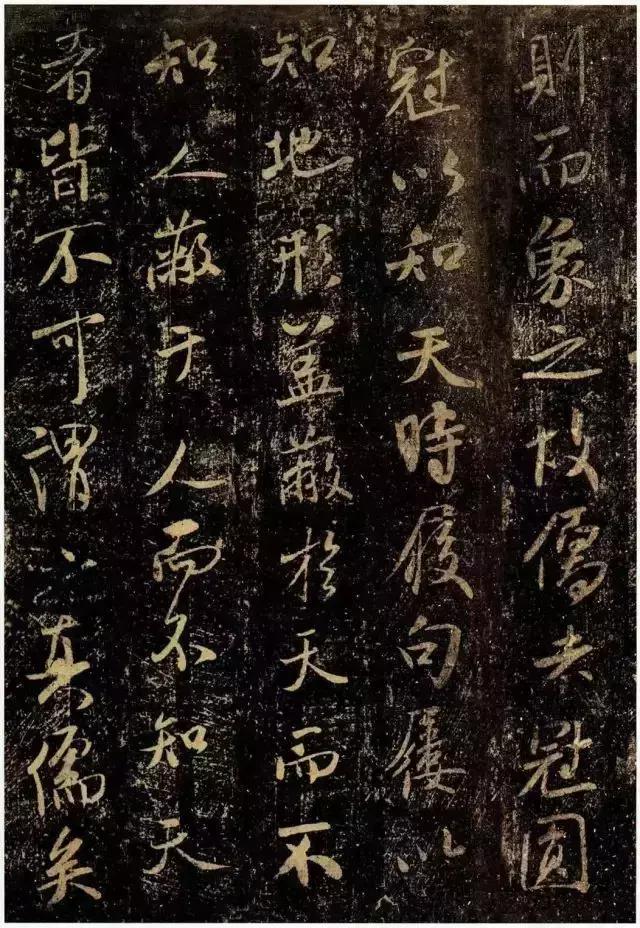 則而象之故儒者冠圓
冠以知天時履句屨以
知地形蓋蔽於天而不
知人蔽于人而不知天
者皆不可謂之真儒矣